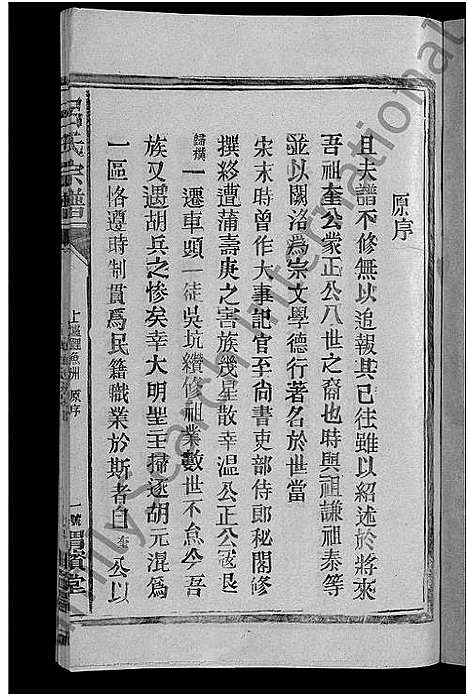 原序
且夫譜不修無以追報其已往雖以紹述於將來
吾祖奎公蒙正公八世之裔也時與祖謙祖泰等
並以關洛為宗文學德行著名於世當
宋末時曾作大事記官至尚書吏部侍郎秘閣修
撰終遭蒲壽庚之害族幾星散幸溫公正公寇退
歸橫一遷車頭一徒吳坑纘修祖業數世不魚今吾
族又遇胡兵之慘矣幸大明聖主掃逐胡元混為
一區恪遵時制貫為民籍職業於斯者自奎公以
呂氏宗譜
上鯉魚洲 原序
一號
渭濱堂
MySearch International